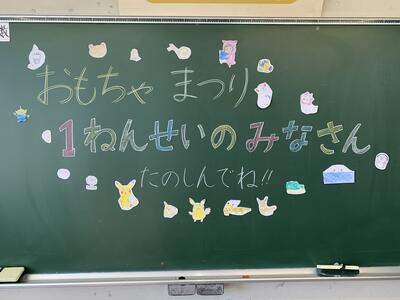 おもちゃ まつり
1ねんせいの みなさん
たのしんでね!!